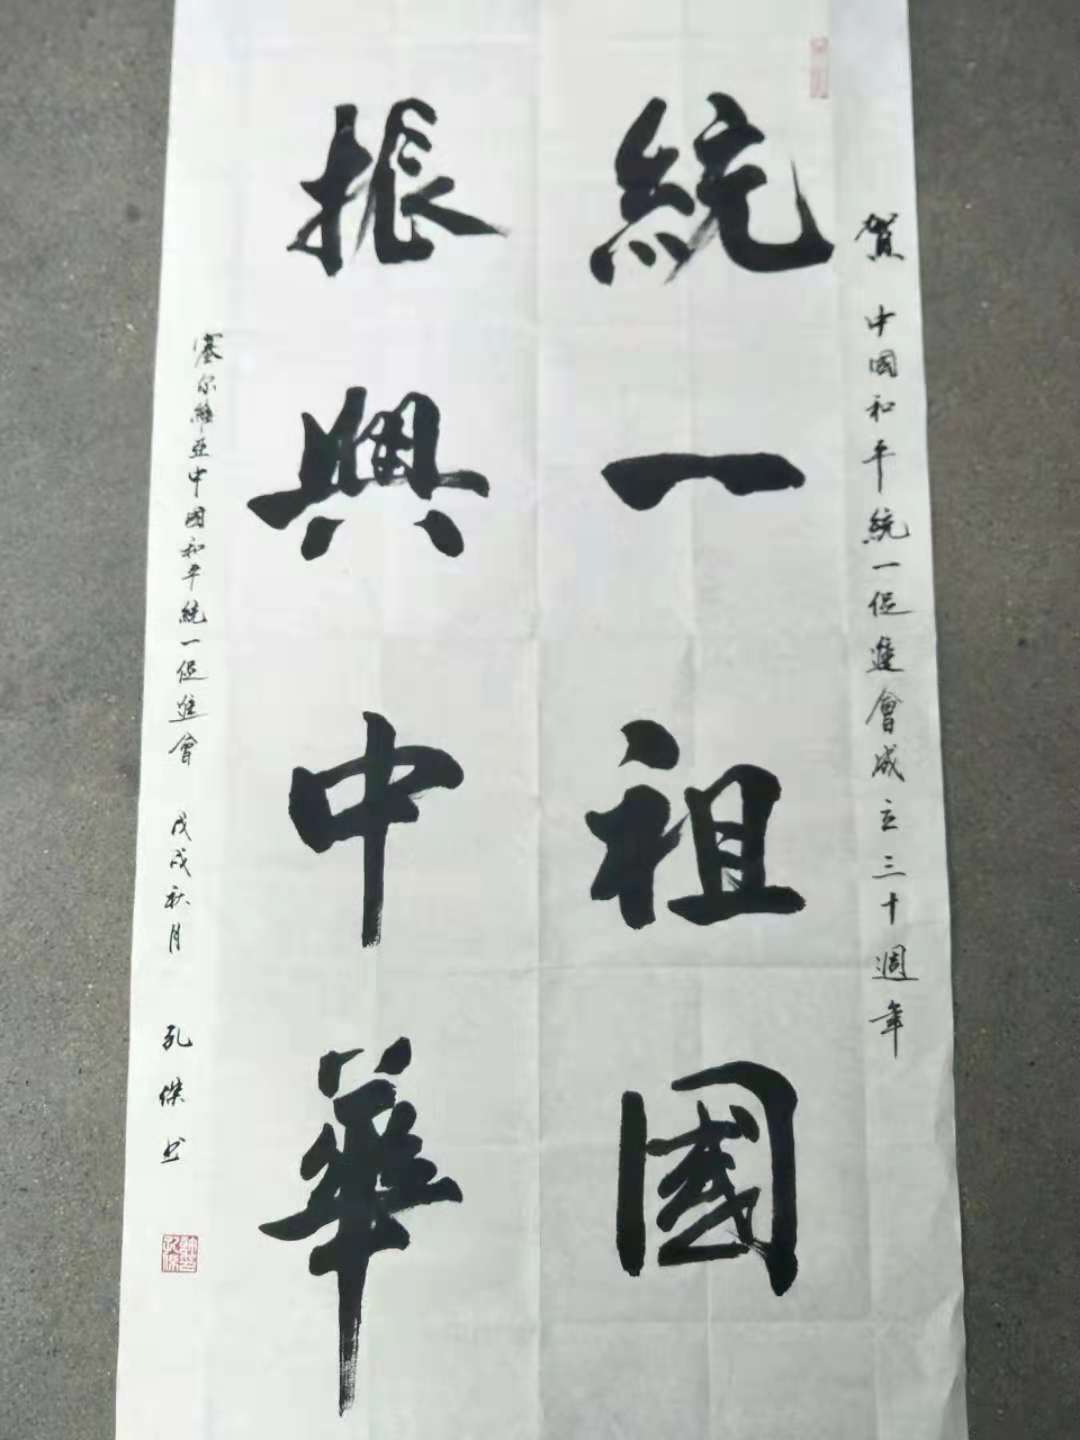 賀 中國和平統一促進會成立三十週年
統一祖國
振興中華
塞尔維亚中國和平統一促進會 戊戌秋月 孔傑书